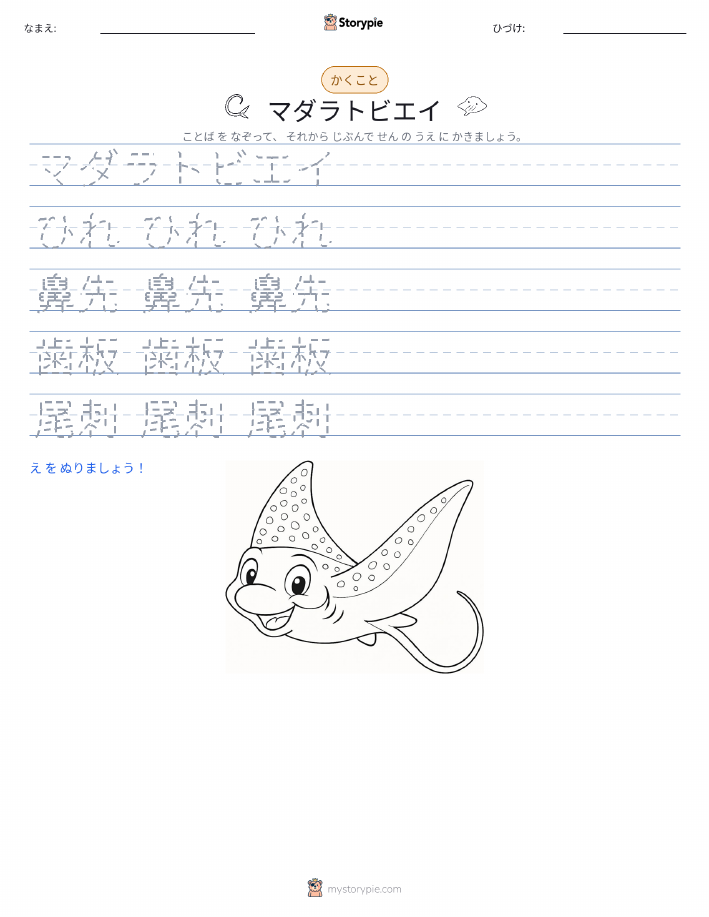 なまえ:
Storypie
ひづけ:
かくこと
マダラトビエイ
ことば を なぞって、 それから じぶんで せん の うえ に かきましょう。
マダラトビエイ
ひれ ひれ ひれ
鼻先 鼻先 鼻先
歯板 歯板 歯板
尾刺 尾刺 尾刺
え を ぬりましょう！
mystorypie.com